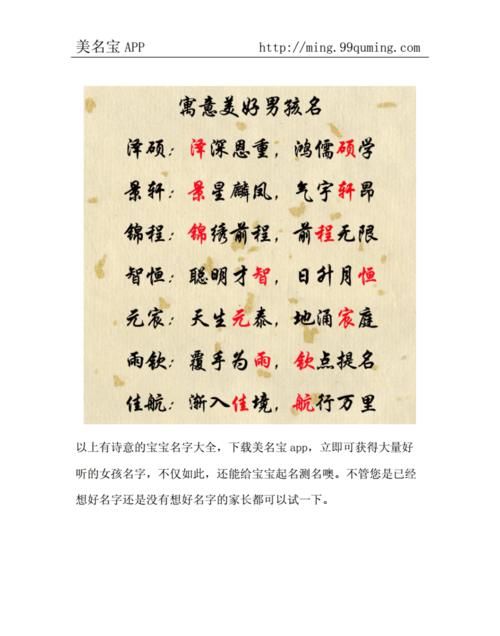 美名宝 APP http://ming.99quming.com
寓意美好男孩名
泽硕：泽深恩重，鸿儒硕学
景轩：景星麟凤，气宇轩昂
锦程：锦绣前程，前程无限
智恒：聪明才智，日升月恒
元宸：天生元泰，地涌宸庭
雨钦：覆手为雨，钦点提名
佳航：渐入佳境，航行万里
以上有诗意的宝宝名字大全，下载美名宝 app，立即可获得大量好
听的女孩名字，不仅如此，还能给宝宝起名测名噢。不管您是已经
想好名字还是没有想好名字的家长都可以试一下。